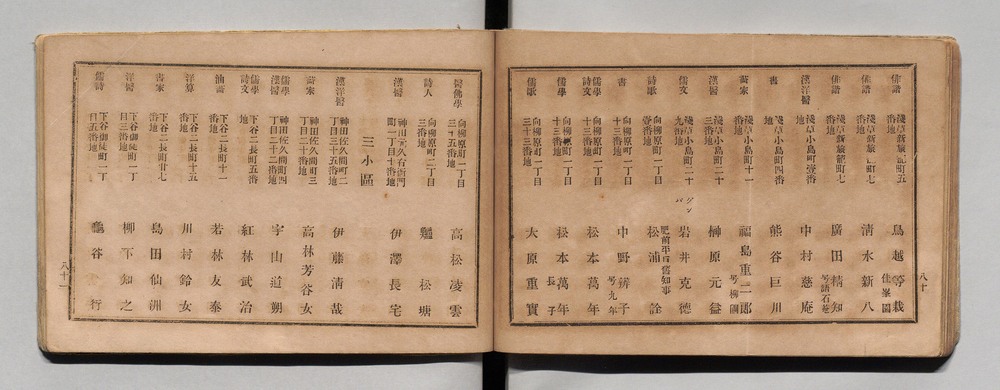 俳諧 淺草新旅籠町五番地 鳥越等栽 佳峯園
俳諧 淺草新旅籠町七番地 清水新八
俳諧 淺草新旅籠町七番地 廣田精知 号諸石庵
漢洋醫 淺草小島町壹番地 中村慈庵
書 淺草小島町四番地 熊谷巨川
畫家 淺草小島町十一番地 福島重二郎 号柳圃
漢醫 淺草小島町二十三番地 榊原元益
儒文 淺草小島町二十九番地 岩井克德
詩歌 向柳原町一丁目壹番地 肥前平戸舊知事 松浦詮
書 向柳原町一丁目十三番地 中野辨子 号九年
儒學詩文 向柳原町一丁目十三番地 松本萬年
儒學 向柳原町一丁目十三番地 松本萬年長子
儒歌 向柳原町一丁目三十三番地 大原重實
八十
醫佛學 向柳原町一丁目三十五番地 高松凌雲
詩人 向柳原町二丁目三番地 鱸松塘
漢醫 神田 久右衛門町一丁目十番地 伊澤長宅
三小區
漢洋醫 神田佐久間町二丁目三十五番地 伊藤清哉
畫家 神田佐久間町三丁目二十番地 高林芳谷女
儒學漢醫 神田佐久間町四丁目二十二番地 宇山道朔
儒學詩文 下谷二長町五番地 紅林武治
油畫 下谷二長町十一番地 若林友泰
洋算 下谷二長町十五番地 川村鈴女
書家 下谷二長町廿七番地 島田仙洲
洋學 下谷御徒町一丁目三番地 柳下知之
儒詩 下谷御徒町一丁目五番地 龜谷行
八十一